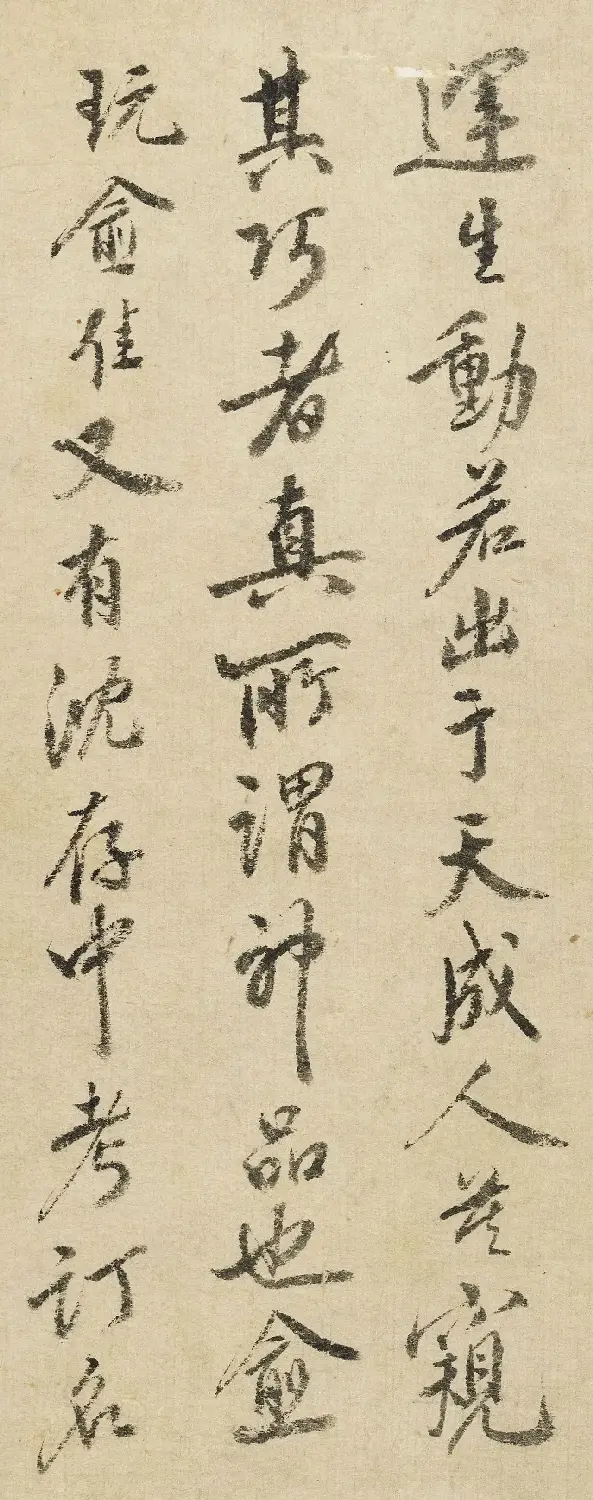 運生動若出于天成人莫窺
其巧者真所謂神品也愈
玩愈佳又有沈存中考訂名